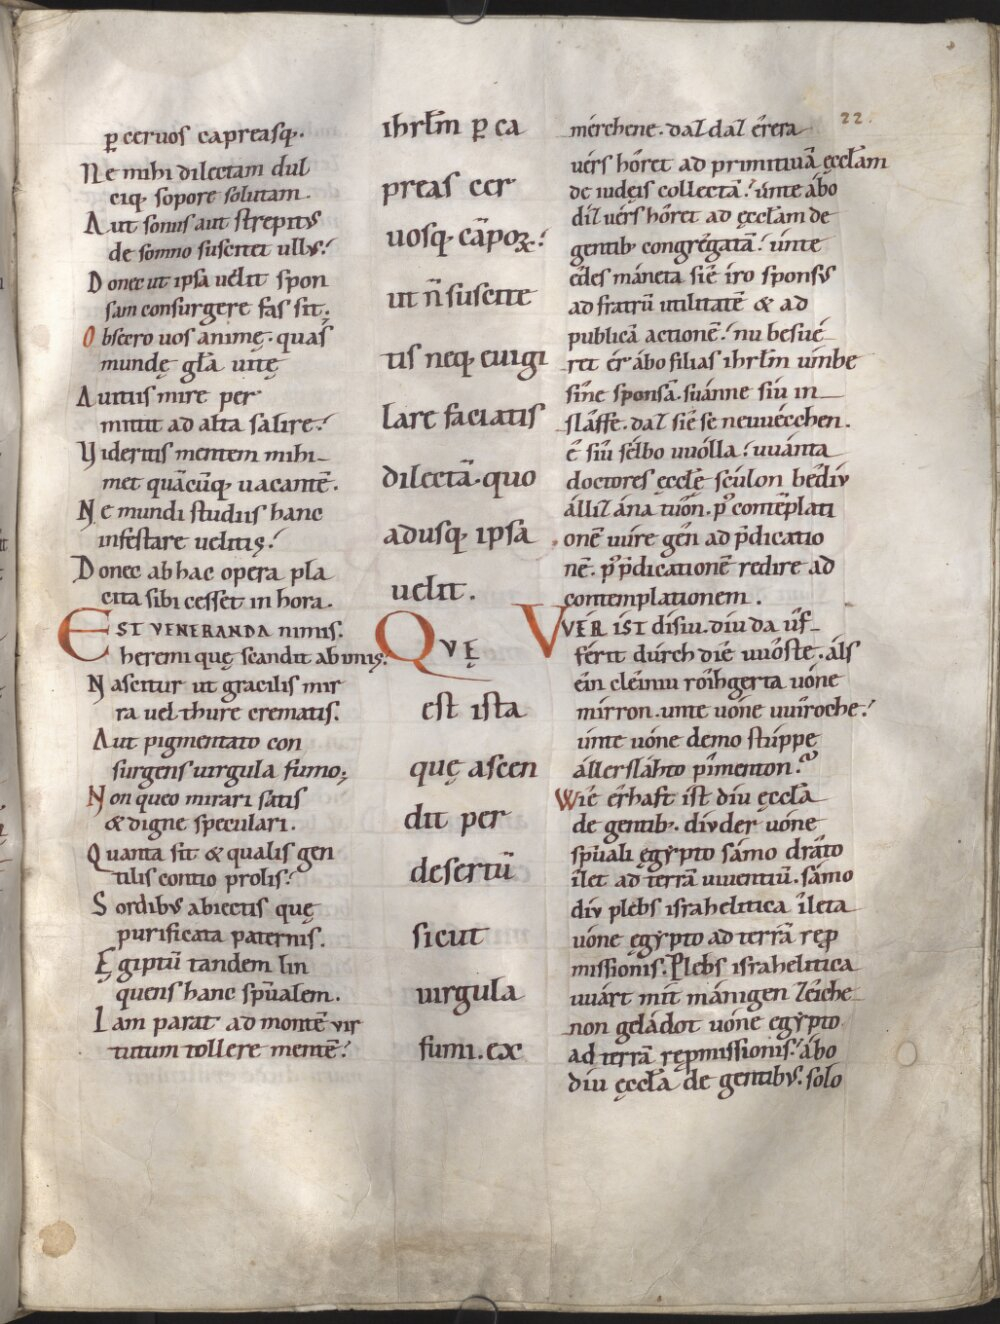 22.
ꝑ ceruos capreasq;.
Ne mihi dilectam dul
ciq; sopore solutam.
Aut sonus aut strepitus
de somno suscitet ullus?
Donec ut ipsa uelit spon
sam consurgere fas sit.
Obsecro uos animę. quas
mundę gła uitę
Auitus mire per
mittit ad alta salire?
Videritis mentem mihi
met quācūq; uacantē.
Ne mundi studiis hanc
infestare uelitis?
Donec ab hac opera pla
cita sibi cesset in hora.
EST VENERANDA nimis.
heremi quę scandit ab imis.
Nascitur ut gracilis mir
ra uel thure crematis.
Aut pigmentato con
surgens uirgula fumo;
Non queo mirari satis
& digne speculari.
Quanta sit & qualis gen
tilis contio prolis?
Sordibus abiectis quę
purificata paternis.
Ęgiptū tandem lin
quens hanc sp̄ualem.
Iam parat ad montē vir
tutum tollere mentē?
ihrłm ꝑ ca
preas cer
uosq; cāpoꝝ?
ut n̄ suscite
tis neq; euigi
lare faciatis
dilectā. quo
adusq; ipsa
uelit.
QVĘ
est ista
quę ascen
dit per
desertū
sicut
uirgula
fumi. ex
mérchene. daz daz érera
uérs hôret ad primitiuā ęccłam
de iudęis collectā? únte ábo
diz uérs hôret ad ęccłam de
gentib; congrégatā? únte
édes máneta síe íro sponsus
ad fratrū utilitatē & ad
publicā actionē? nu besué
ret ér ábo filias ihrłm úmbe
síne sponsā. suánne síu in
sláffe. daz síe se neuuécchen.
é síu sélbo uuólla? uuánta
doctores ęccłę scúlon bédiu
állíz ána túon. p̄ contēplati
onē uúre gén ad p̄dicatio
nē. p̄ p̄dicationē redire ad
contemplationem.
VVER IST dísiu. díu da ûf
férit dúrch díe uuôste. áls
éin cléiniu róihgerta uóne
mirron. unte uóne uuîroche?
únte uóne demo stúppe
állerslahto pîmenton?
Wíe érhaft ist díu ęccła
de gentib;. díu der uóne
sp̄uali ęgypto sámo drâto
îlet ad terrā uiuentiū. sámo
díu plebs israhelitica îleta
uóne ęgypto ad terrā reꝓ
missionis. Plebs israhelitica
uuárt mit mánigen zéiche
non geládot uóne egỳpto
ad terrā reꝓmissionis? ábo
díu ęccła de gentibus. solo